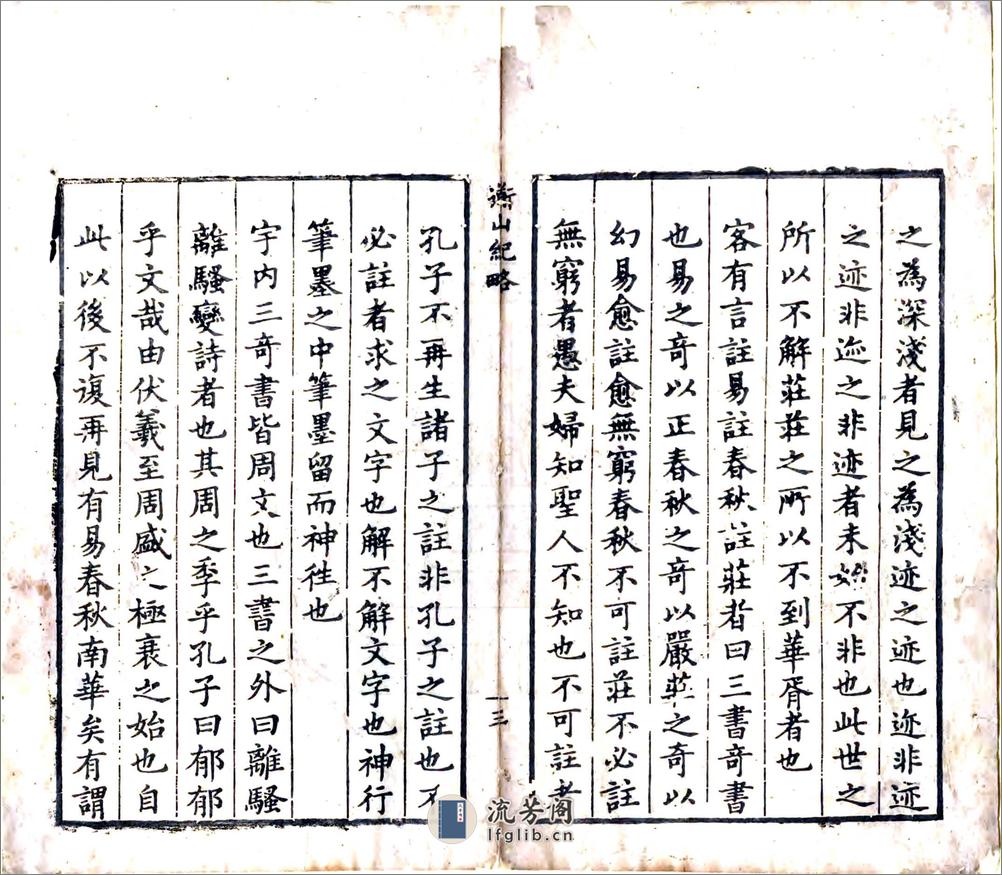 之為深淺者見之為淺迹之迹也迹非迹
之迹非迹之非迹者未始不非也此世之
所以不解莊莊之所以不到華胥者也
客有言註易註春秋註莊者曰三書竒書
也易之竒以正春秋之竒以嚴莊之竒以
幻易愈註愈無窮春秋不可註莊不必註
無窮者愚夫婦知聖人不知也不可註者
燕山紀略
一三
孔子不再生諸子之註非孔子之註也不
必註者求之文字也解不解文字也神行
筆墨之中筆墨留而神徃也
宇内三竒書皆周文也三書之外曰離騷
離騷變詩者也其周之季乎孔子曰郁郁
乎文哉由伏羲至周盛之極衰之始也自
此以後不復再見有易春秋南華矣有謂
流芳阁
lfglib.cn